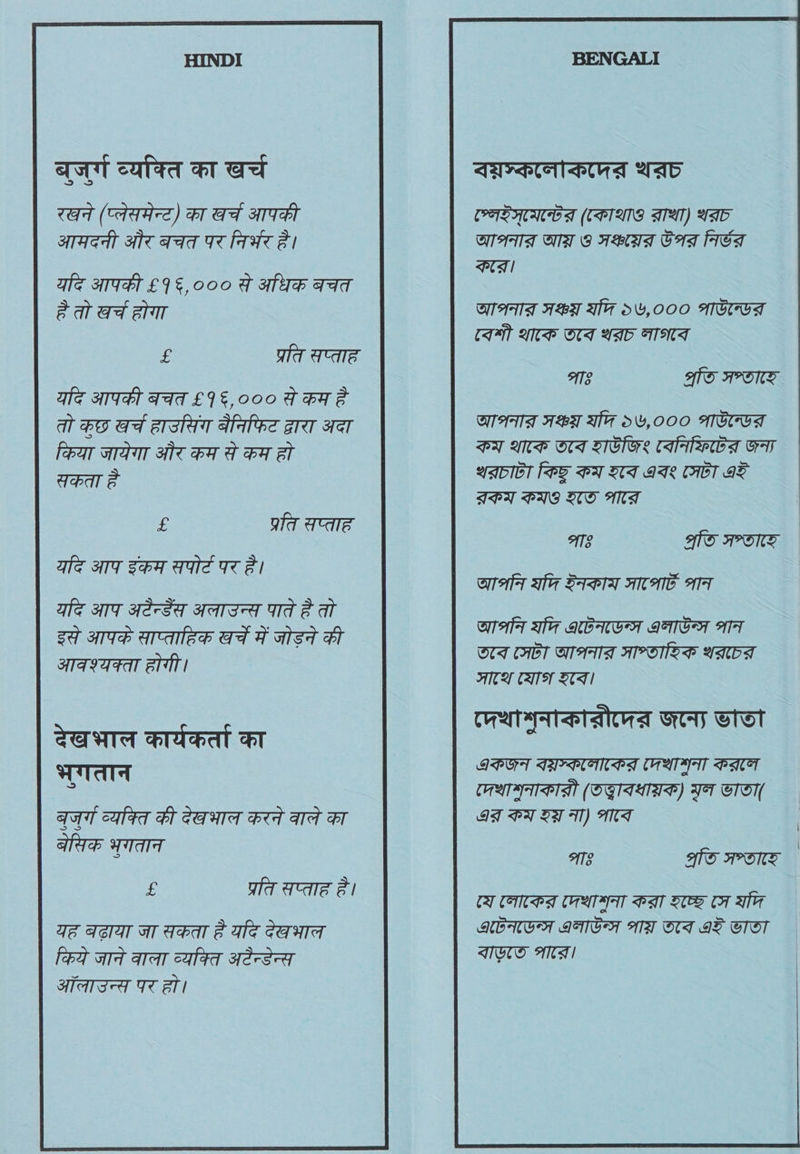 HINDI
बुजुर्ग व्यक्ति का खर्च
रखने (प्लेसमेन्ट) का खर्च आपकी
आमदनी और बचत पर निर्भर है।
यदि आपकी £१६,००० से अधिक बचत
है तो खर्च होगा
£ प्रति सप्ताह
यदि आपकी बचत £१६,००० से कम है
तो कुछ खर्च हाउसिंग बैनिफिट द्वारा अदा
किया जायेगा और कम से कम हो
सकता है
£ प्रति सप्ताह
यदि आप इंकम सपोर्ट पर है।
यदि आप अटैन्डैंस अलाउन्स पाते है तो
इसे आपके साप्ताहिक खर्चे में जोड़ने की
आवश्यक्ता होगी।
देखभाल कार्यकर्ता का
भुगतान
बुजुर्ग व्यक्ति की देखभाल करने वाले का
बेसिक भुगतान
£ प्रति सप्ताह है।
यह बढ़ाया जा सकता है यदि देखभाल
किये जाने वाला व्यक्ति अटैन्डेन्स
ऑलाउन्स पर हो।
BENGALI
বয়স্কলোকদের খরচ
প্লেইস্‌মেন্টের (কোথাও রাখা) খরচ
আপনার আয় ও সঞ্চয়ের উপর নির্ভর
করে।
আপনার সঞ্চয় যদি ১৬,০০০ পাউন্ডের
বেশী থাকে তবে খরচ লাগবে
পাঃ প্রতি সপ্তাহে
আপনার সঞ্চয় যদি ১৬,০০০ পাউন্ডের
কম থাকে তবে হাউজিং বেনিফিটের জন্য
খরচাটা কিছু কম হবে এবং সেটা এই
রকম কমও হতে পারে
পাঃ প্রতি সপ্তাহে
আপনি যদি ইনকাম সাপোর্ট পান
আপনি যদি এটেনডেন্স এলাউন্স পান
তবে সেটা আপনার সাপ্তাহিক খরচের
সাথে যোগ হবে।
দেখাশুনাকারীদের জন্যে ভাতা
একজন বয়স্কলোকের দেখাশুনা করলে
দেখাশুনাকারী (তত্ত্বাবধায়ক) মূল ভাতা(
এর কম হয় না) পাবে
পাঃ প্রতি সপ্তাহে
যে লোকের দেখাশুনা করা হচ্ছে সে যদি
এটেনডেন্স এলাউন্স পায় তবে এই ভাতা
বাড়তে পারে।